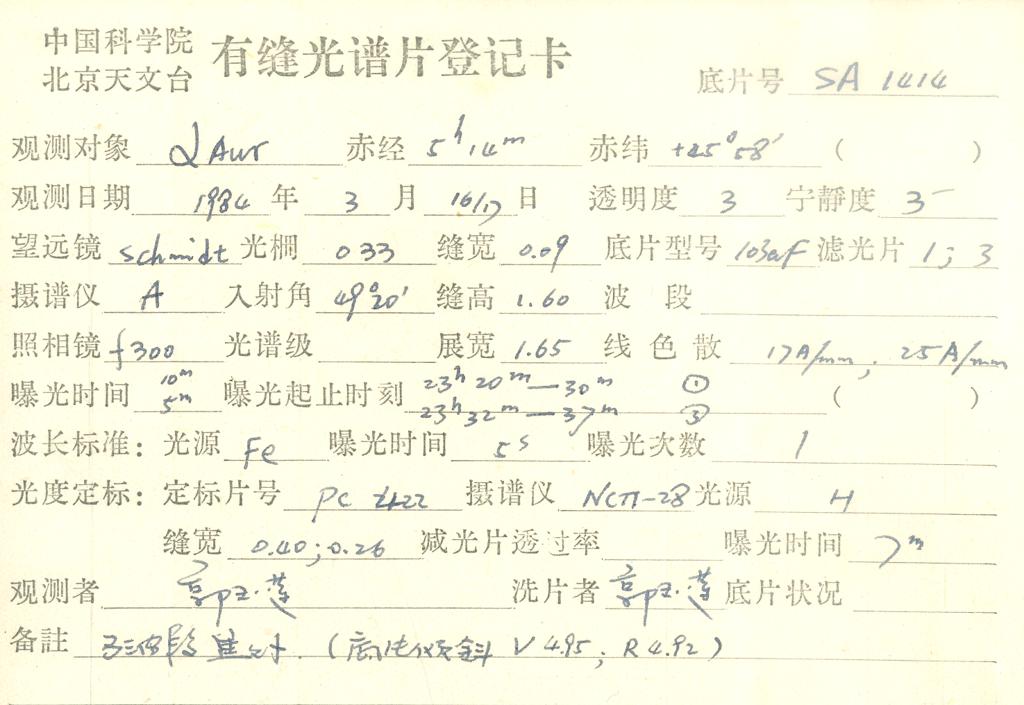 中国科学院
北京天文台
有缝光谱片登记卡
底片号 SA 1414
观测对象 α Aur 赤经 5h 14m 赤纬 +45°58′ ( )
观测日期 1984 年 3 月 16/17 日 透明度 3 宁静度 3-
望远镜 Schmidt 光栅 033 缝宽 0.09 底片型号 103aF 滤光片 1; 3
摄谱仪 A 入射角 49°20′ 缝高 1.60 波段
照相镜 f300 光谱级 展宽 1.65 线色散 17A/mm, 25A/mm
曝光时间 10m 5m 曝光起止时刻 23h 20m—30m ① 23h 32m—37m ③ ( )
波长标准: 光源 Fe 曝光时间 5s 曝光次数 1
光度定标: 定标片号 PC 422 摄谱仪 ИСП-28 光源 H
缝宽 0.40; 0.26 减光片透过率 曝光时间 7m
观测者 郭玉莲 洗片者 郭玉莲 底片状况
备註 ( V 4.95; R 4.92 )